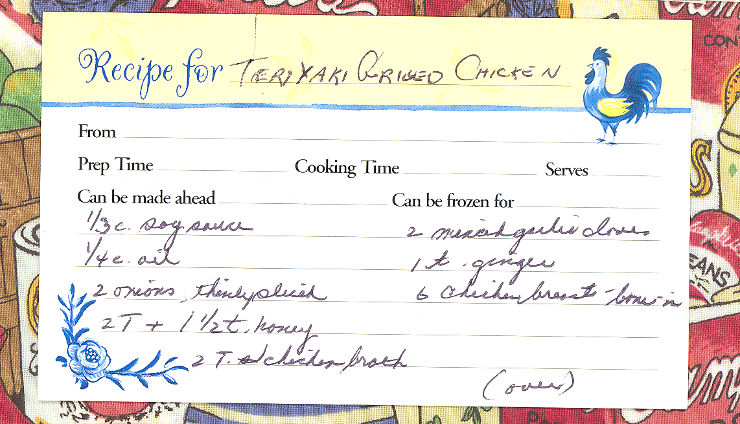 Recipe for TERIYAKI GRILLED CHICKEN
From
Prep Time Cooking Time Serves
Can be made ahead Can be frozen for
1/3 c. soy sauce 2 minced garlic cloves
1/4 c. oil 1 t. ginger
2 onions, thinly sliced 6 chicken breasts - bone-in
2 T + 1 1/2 t. honey
2 T. chicken broth
(over)
CON
S
EANS